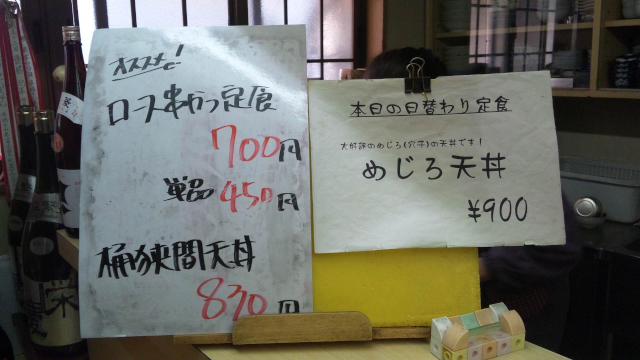 オススメ!
ロース串かつ定食
700円
単品 450円
桶狭間天丼
830円
本日の日替わり定食
大好評のめじろ(穴子)の天丼です!
めじろ天丼
¥900